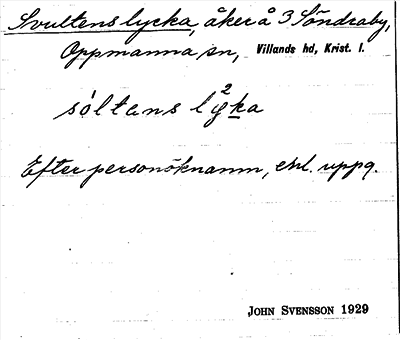 Svultens lycka, åker å 3 Söndraby,
Oppmanna sn, Villands hd, Krist. l.
sóltans lȳ²ka
Efter personöknamn, enl. uppg.
JOHN SVENSSON 1929